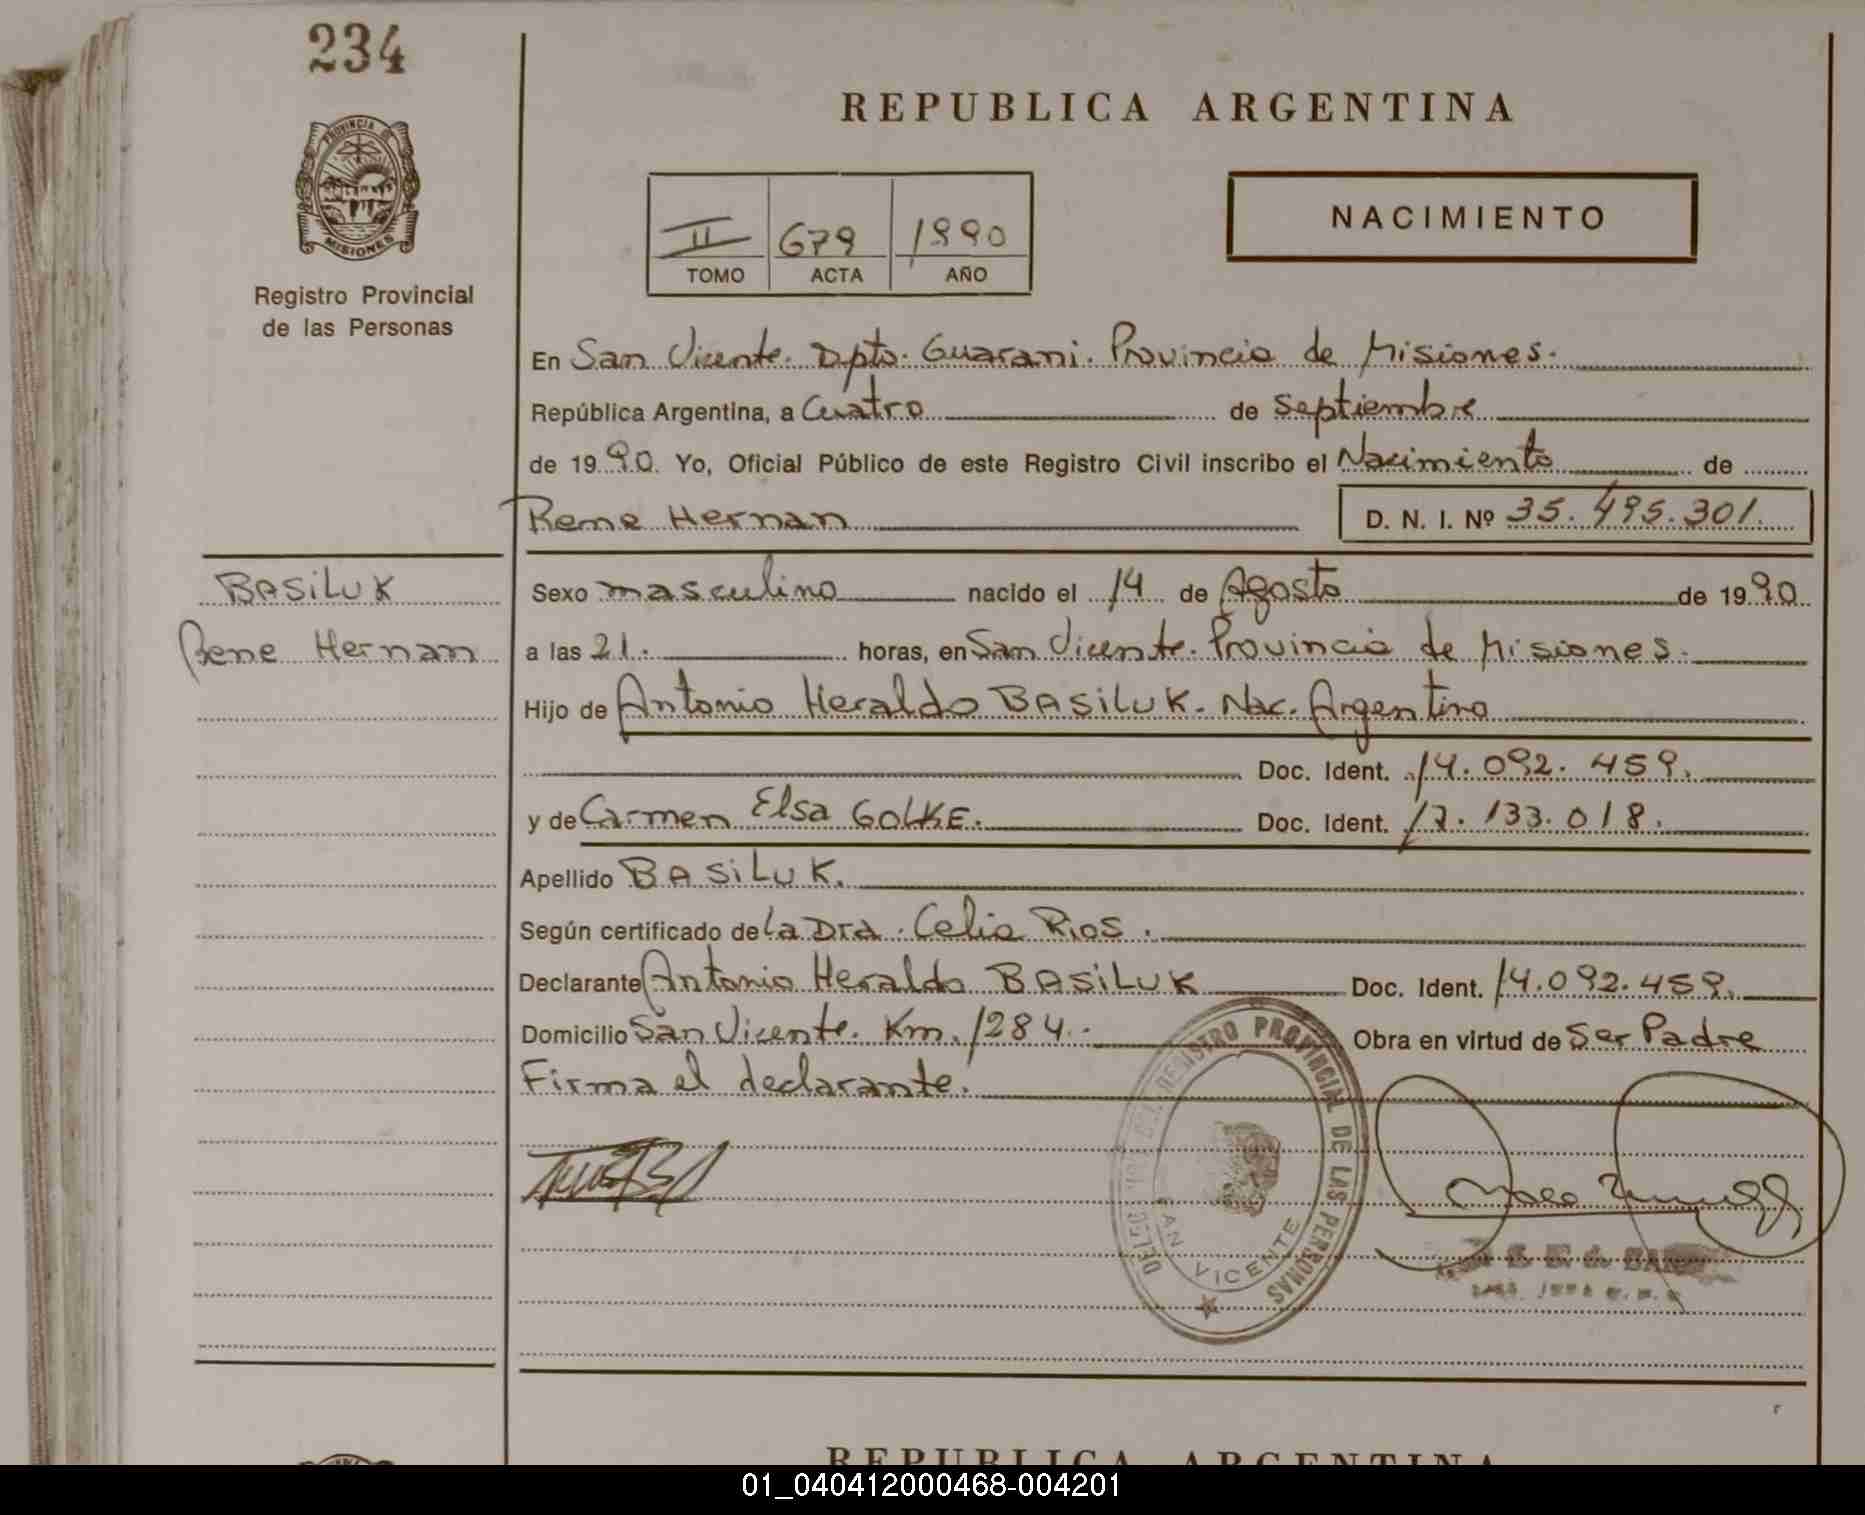 234
PROVINCIA DE
MISIONES
Registro Provincial
de las Personas
REPUBLICA ARGENTINA
II 679 1990
TOMO ACTA AÑO
NACIMIENTO
En San Vicente. Dpto. Guarani. Provincia de Misiones.
República Argentina, a Cuatro de Septiembre
de 1990. Yo, Oficial Público de este Registro Civil inscribo el Nacimiento de
Rene Hernan D. N. I. Nº 35.495.301.
BASiLUK
Rene Hernan
Sexo masculino nacido el 14 de Agosto de 1990
a las 21. horas, en San Vicente. Provincia de Misiones.
Hijo de Antonio Heraldo BASiLUK. Nac. Argentina
Doc. Ident. 14.092.459.
y de Carmen Elsa GOLKE. Doc. Ident. 17.133.018.
Apellido BASiLUK.
Según certificado de La Dra. Celia Rios.
Declarante Antonio Heraldo BASiLUK Doc. Ident. 14.092.459.
Domicilio San Vicente. Km. 1284. Obra en virtud de Ser Padre
Firma el declarante.
REGISTRO PROVINCIAL DE LAS PERSONAS
SAN VICENTE
REPUBLICA ARGENTINA
01_040412000468-004201